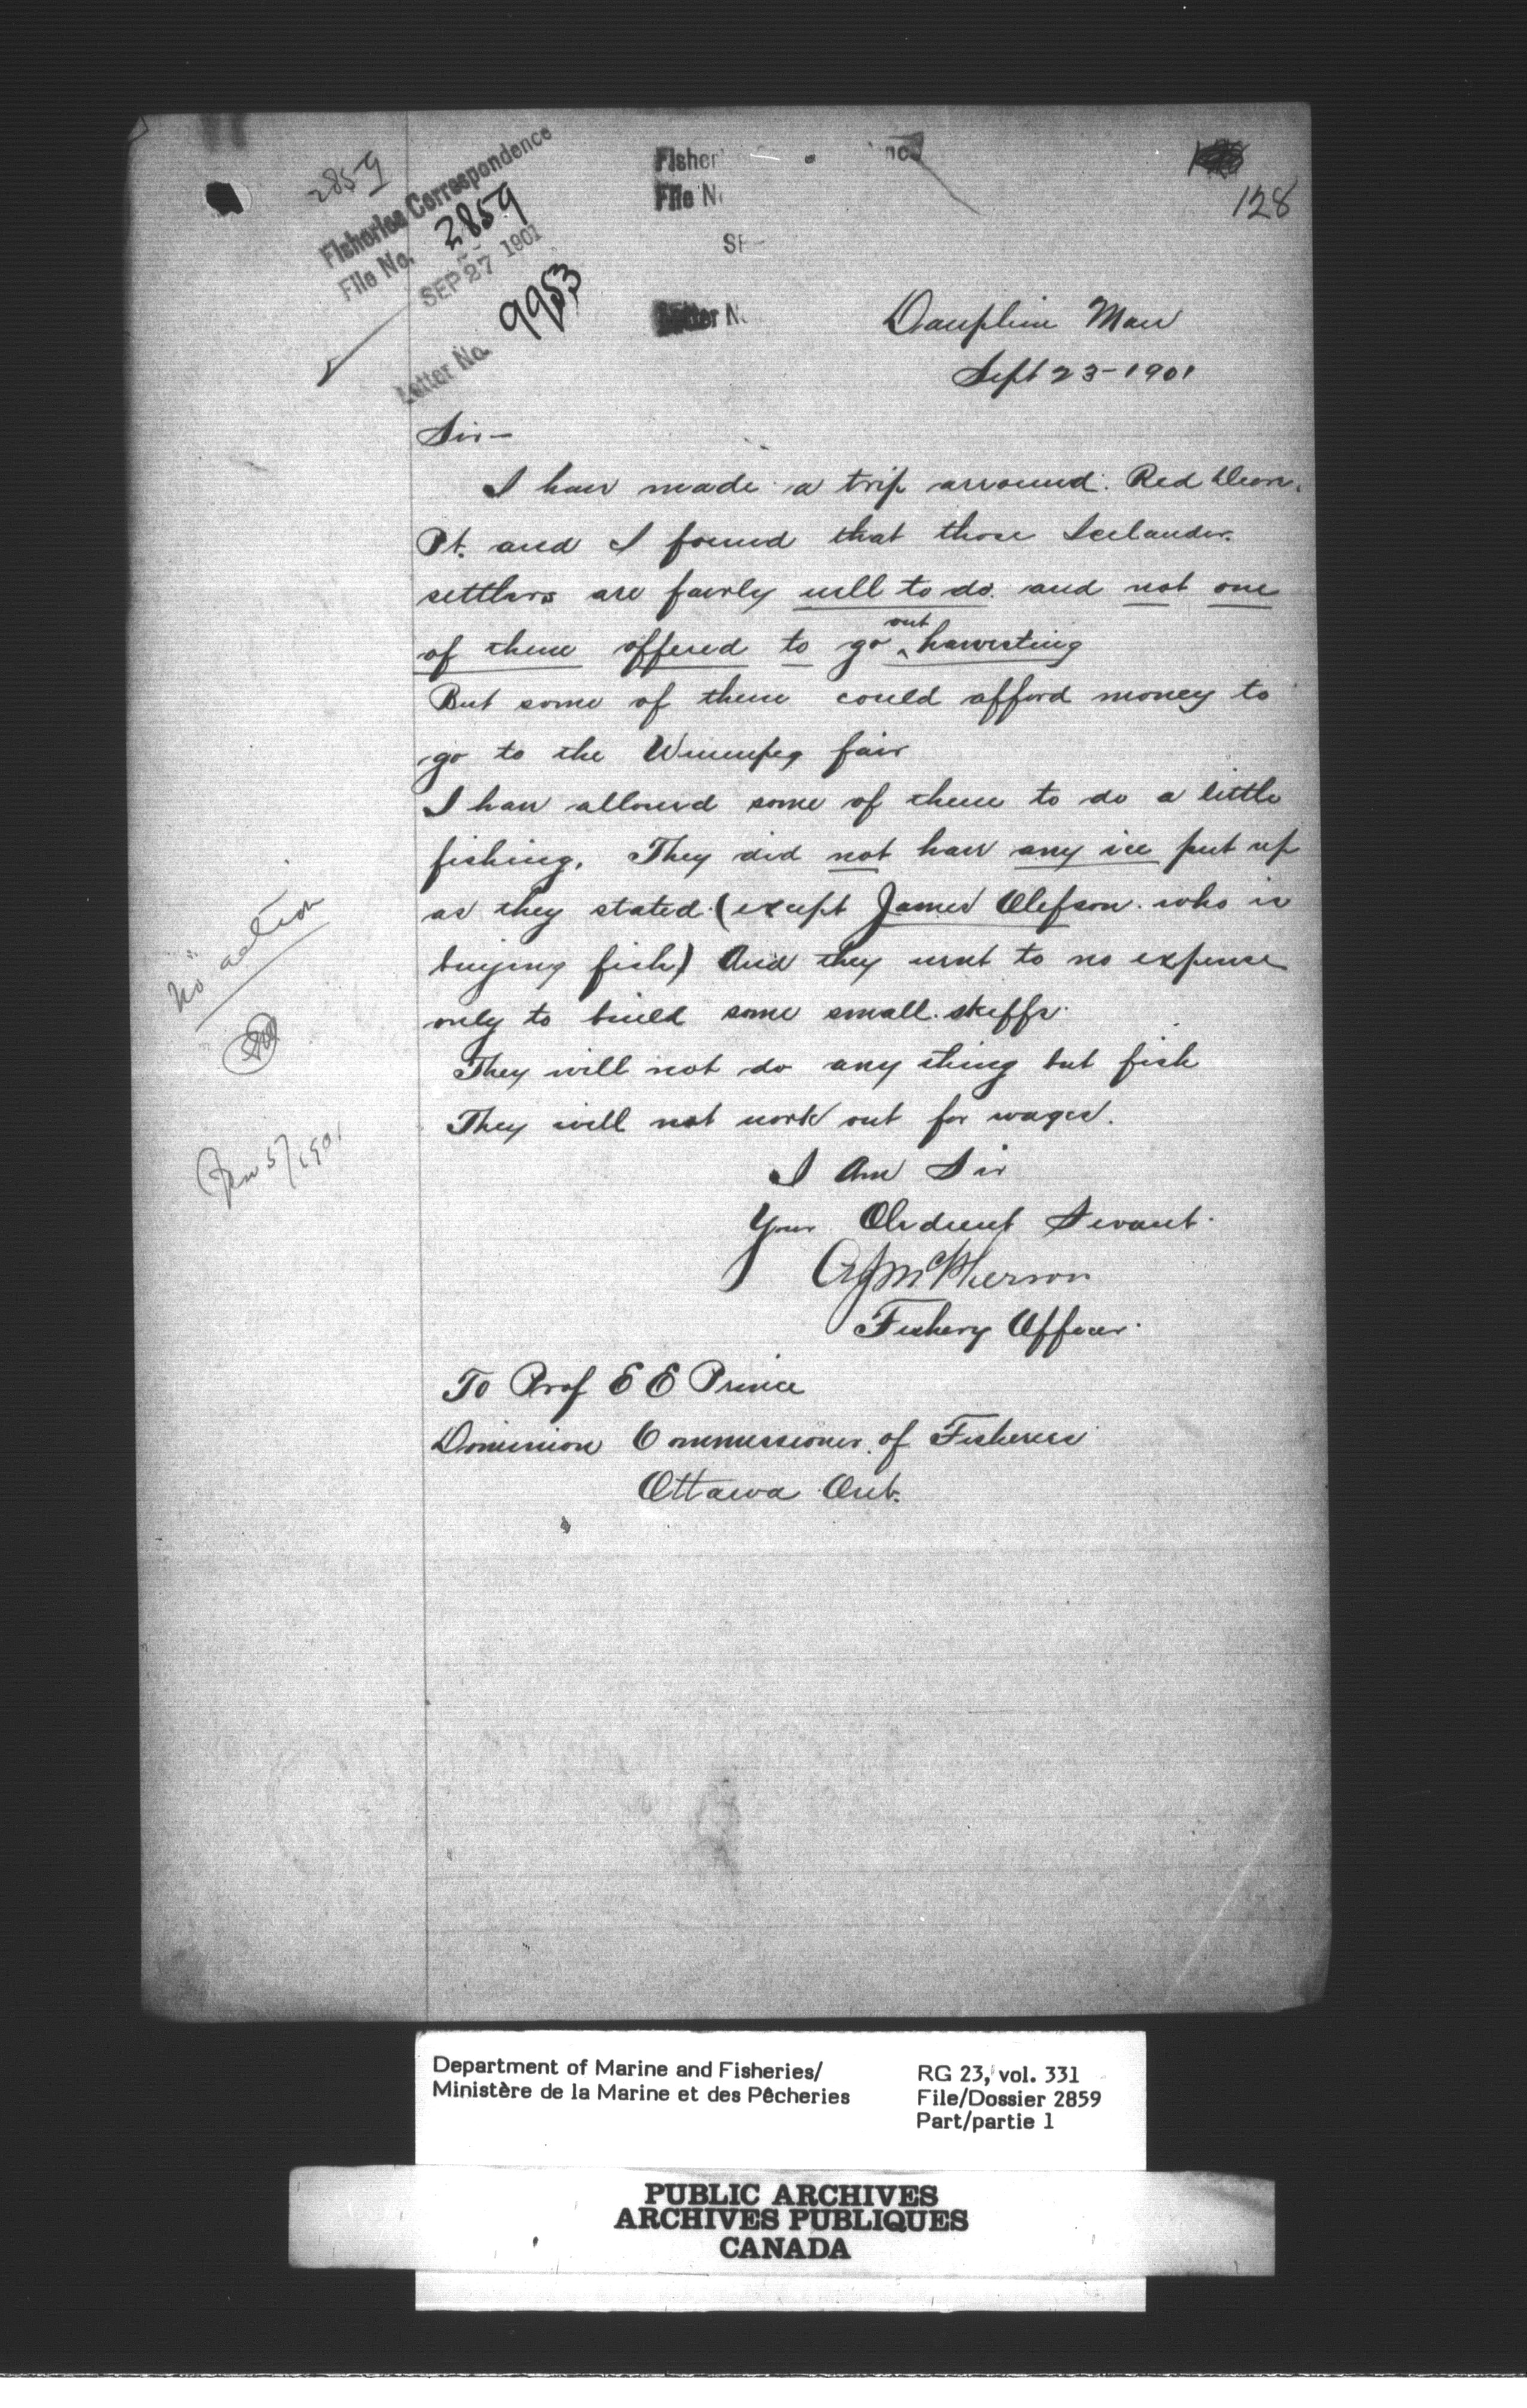 2859
Fisheries Correspondence
File No. 2859
SEP 27 1901
Letter No. 9953
Fisher
File N
SE
Letter N
128
Dauphin Man
Sept 23-1901
Sir-
I have made a trip arround Red Deer
Pt. and I found that those Icelander
settlers are fairly well to do. and not one
of them offered to go out harvesting
But some of them could afford money to
go to the Winnipeg fair
I have allowed some of them to do a little
fishing. They did not have any ice put up
as they stated (except James Olefson who is
buying fish) And they went to no expense
only to build some small skiffs.
They will not do any thing but fish
They will not work out for wages.
I Am Sir
Your Obedient Servant
McPherson
Fishery Officer
To Prof E E Prince
Dominion Commissioner of Fisheries
Ottawa Ont.
No action
5/1901
Department of Marine and Fisheries/
Ministère de la Marine et des Pêcheries
RG 23, vol. 331
File/Dossier 2859
Part/partie 1
PUBLIC ARCHIVES
ARCHIVES PUBLIQUES
CANADA